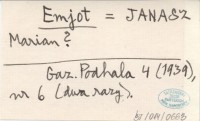 Emjot = JANASZ
Marian?
Gaz. Podhala 4 (1939),
nr 6 (dwa razy).